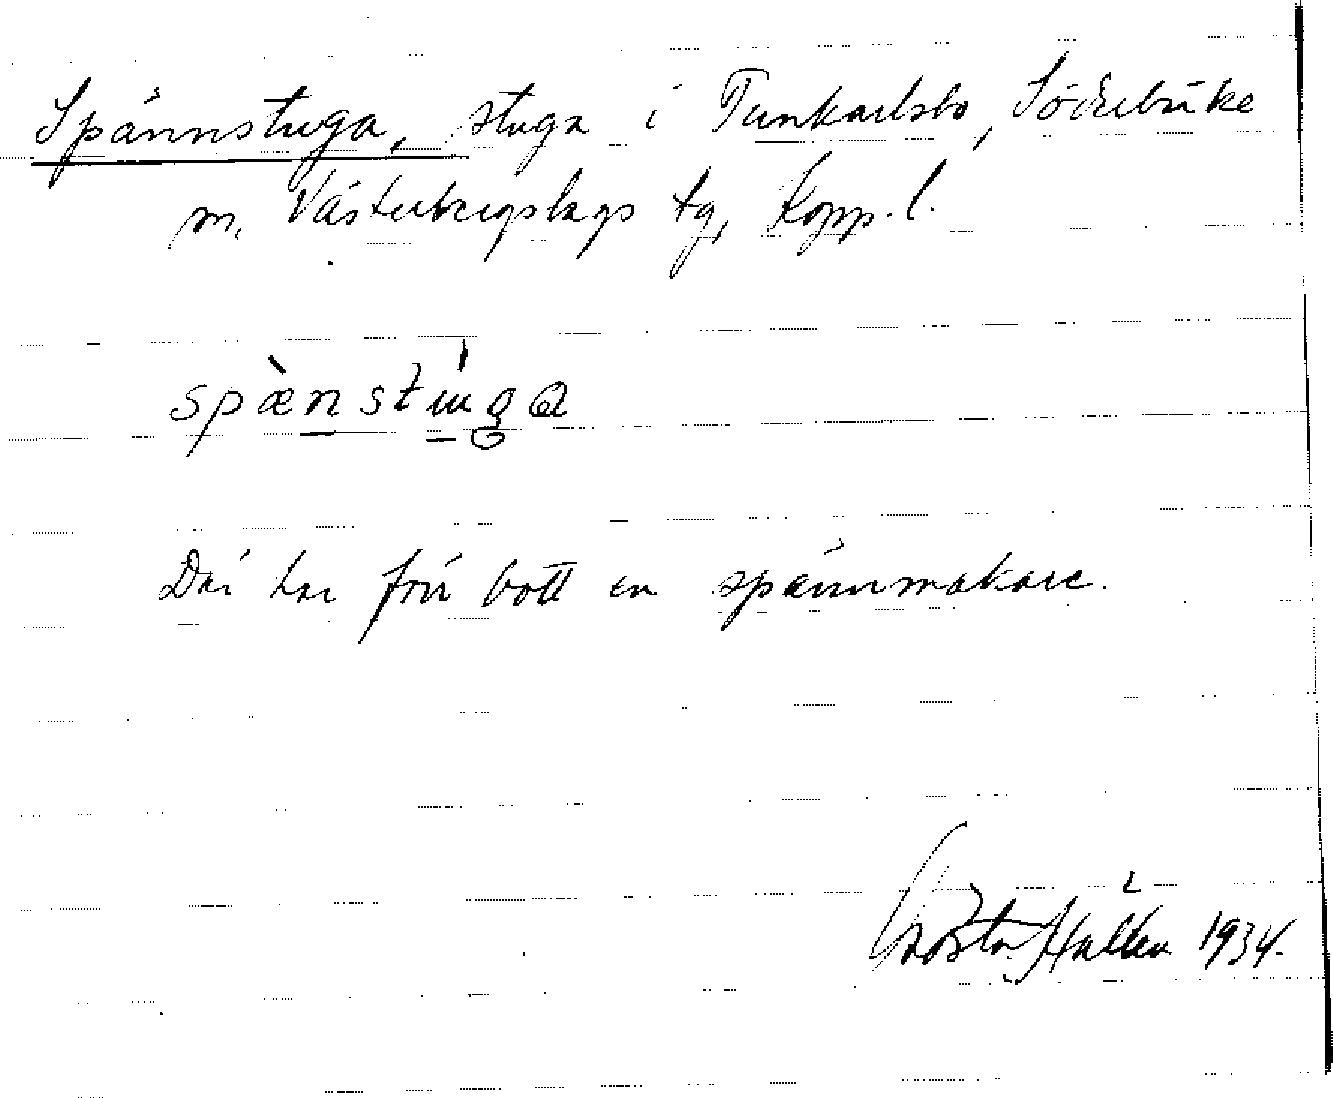 Spännstuga, stuga i Tunkarlsbo, Söderbärke
m. Västerbergslags tg, Kopp. l.
spænstuga
Där har förr bott en spännmakare.
Gösta Hallén 1934.